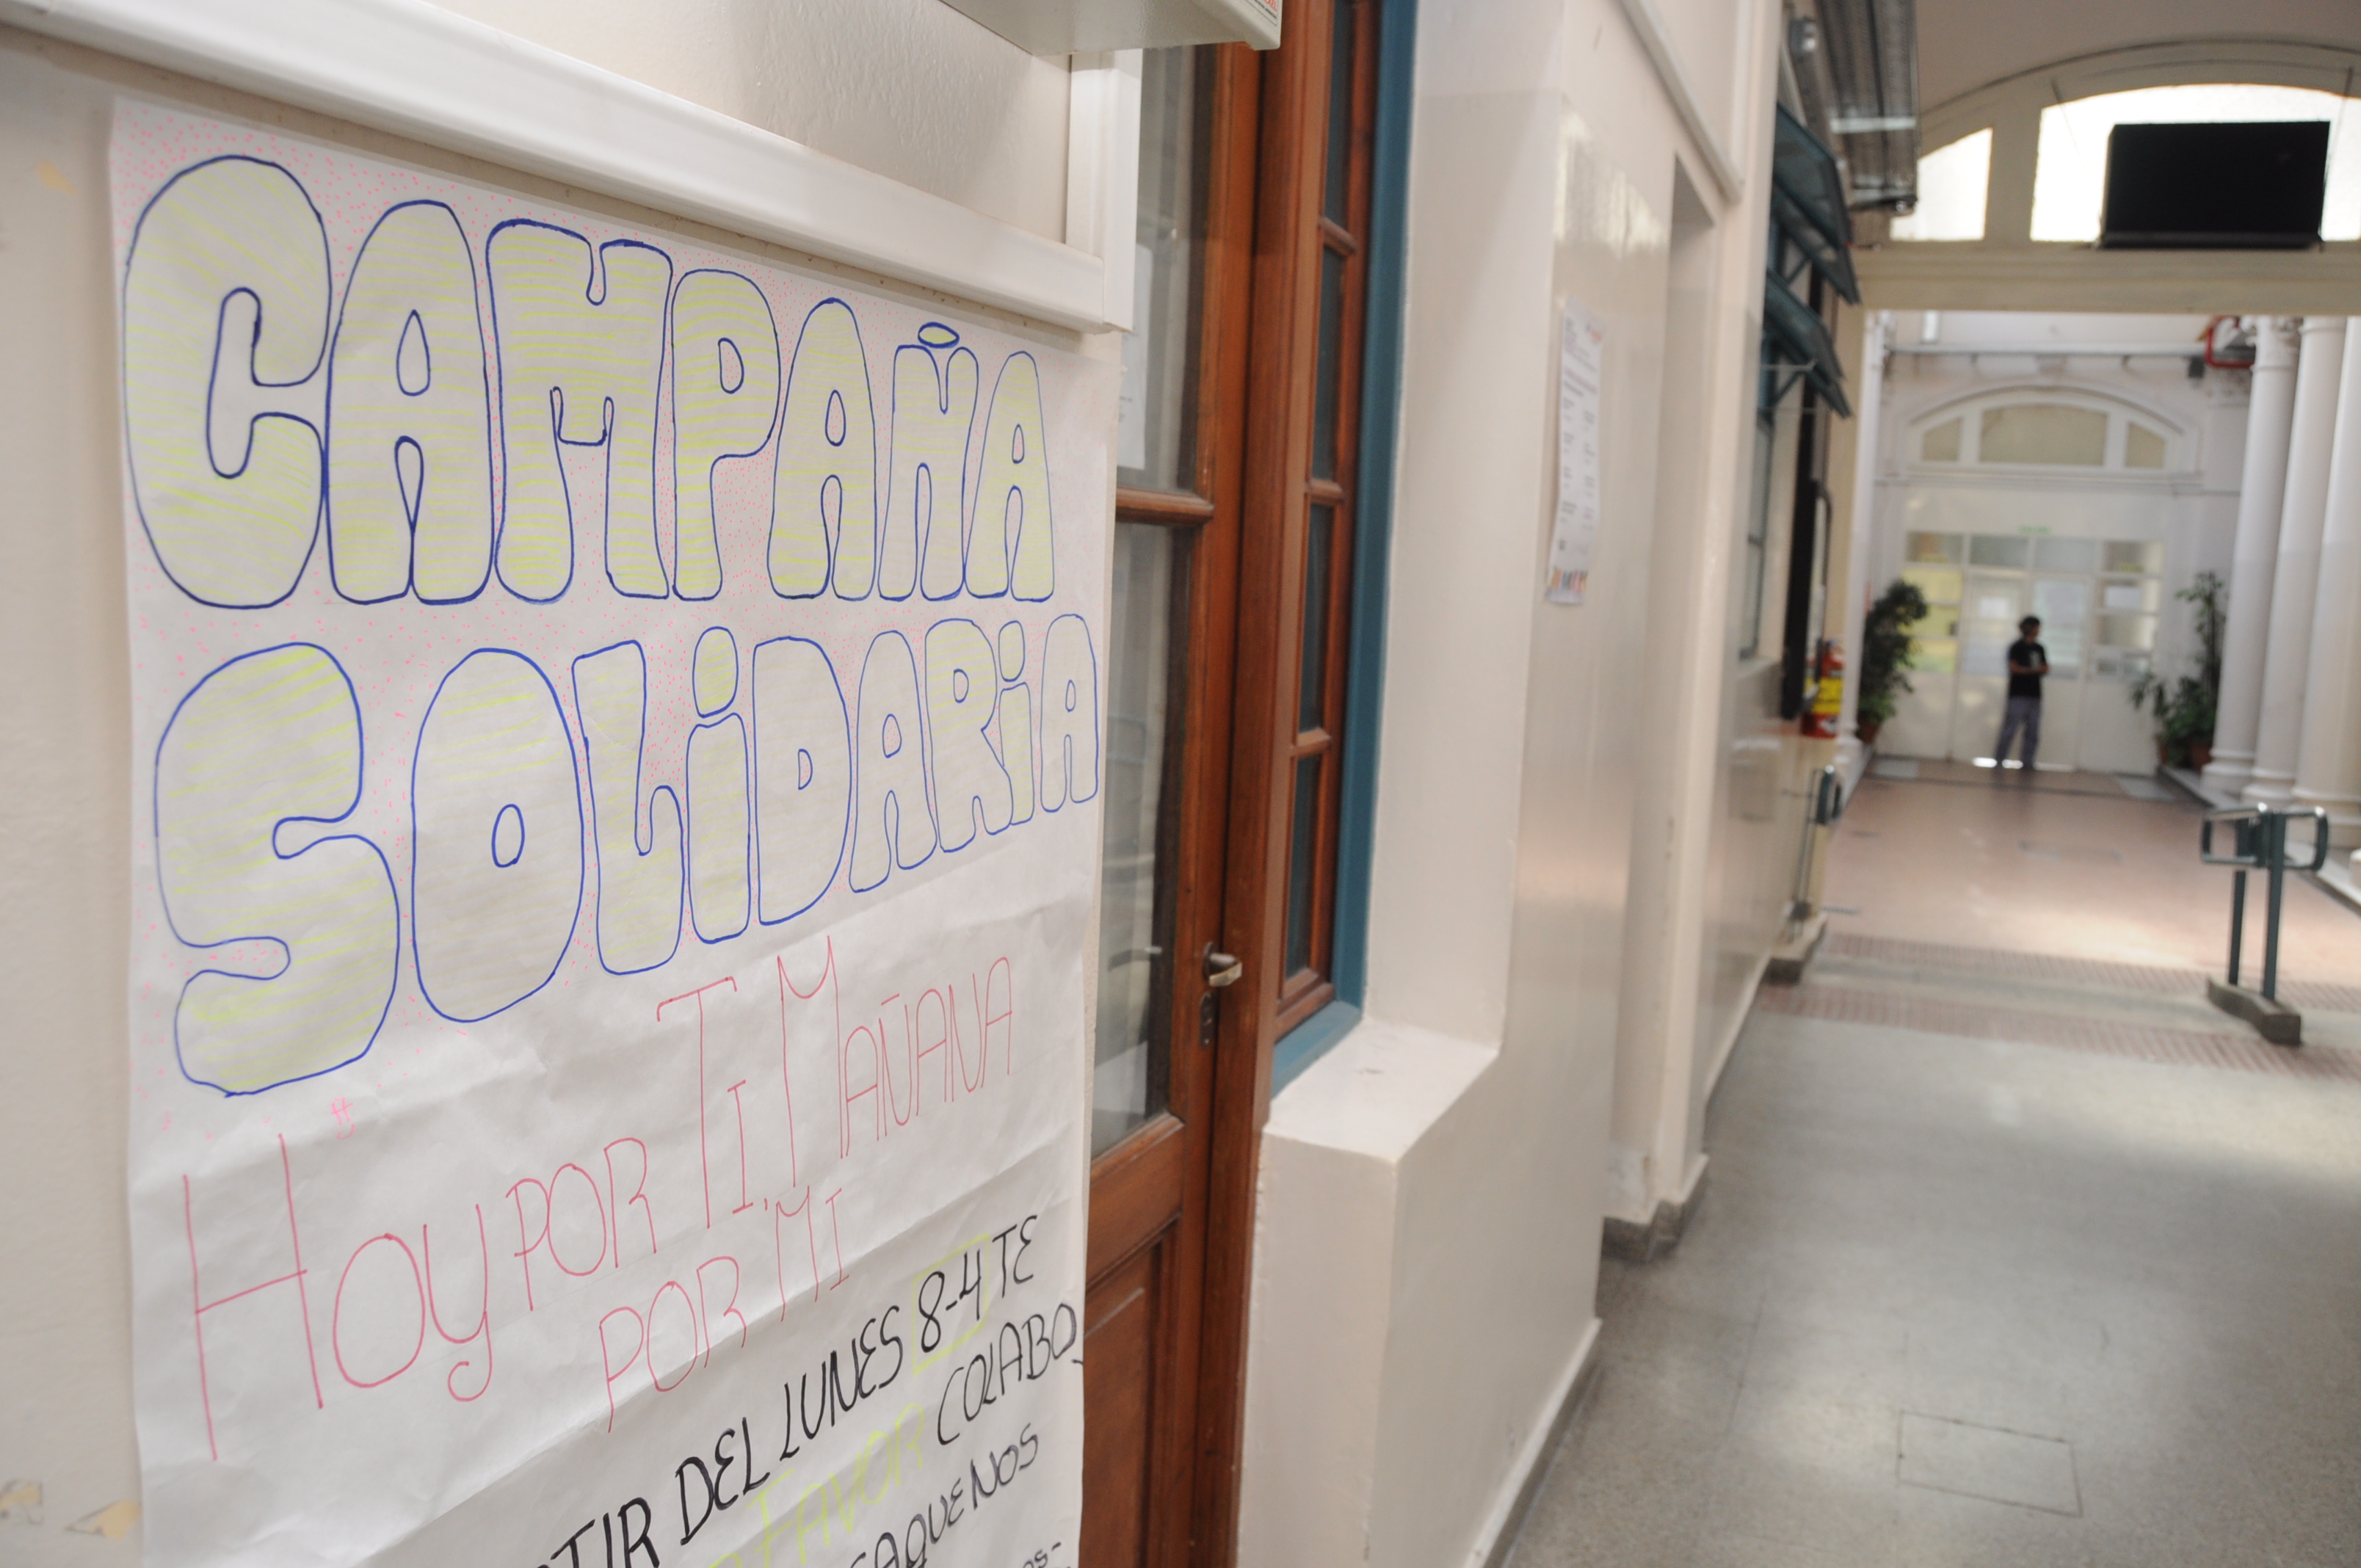 CAMPAÑA
SOLIDARIA
HOY POR TI, MAÑANA
POR MI
DEL LUNES 8-4 TE
FAVOR COLABO